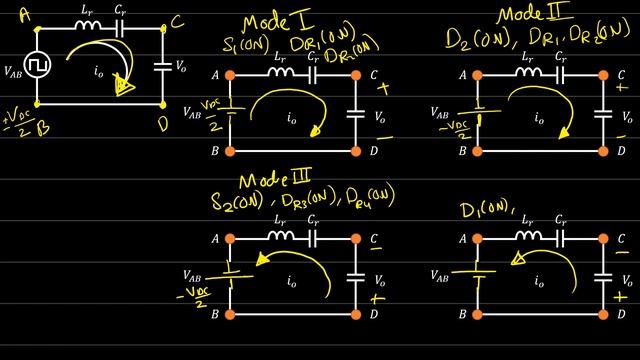 A
L_r
C_r
C
V_AB
i_o
V_o
±V_DC/2
B
D
Mode I
S_1(ON) D_R1(ON)
D_R2(ON)
L_r
C_r
A
C
+
V_AB
V_DC/2
i_o
V_o
−
B
D
Mode II
D_2(ON), D_R1, D_R2(ON)
L_r
C_r
A
C
+
V_AB
−V_DC/2
i_o
V_o
−
B
D
Mode III
S_2(ON), D_R3(ON), D_R4(ON)
L_r
C_r
A
C
−
V_AB
−V_DC/2
i_o
V_o
+
B
D
D_1(ON),
L_r
C_r
A
C
−
V_AB
i_o
V_o
+
B
D